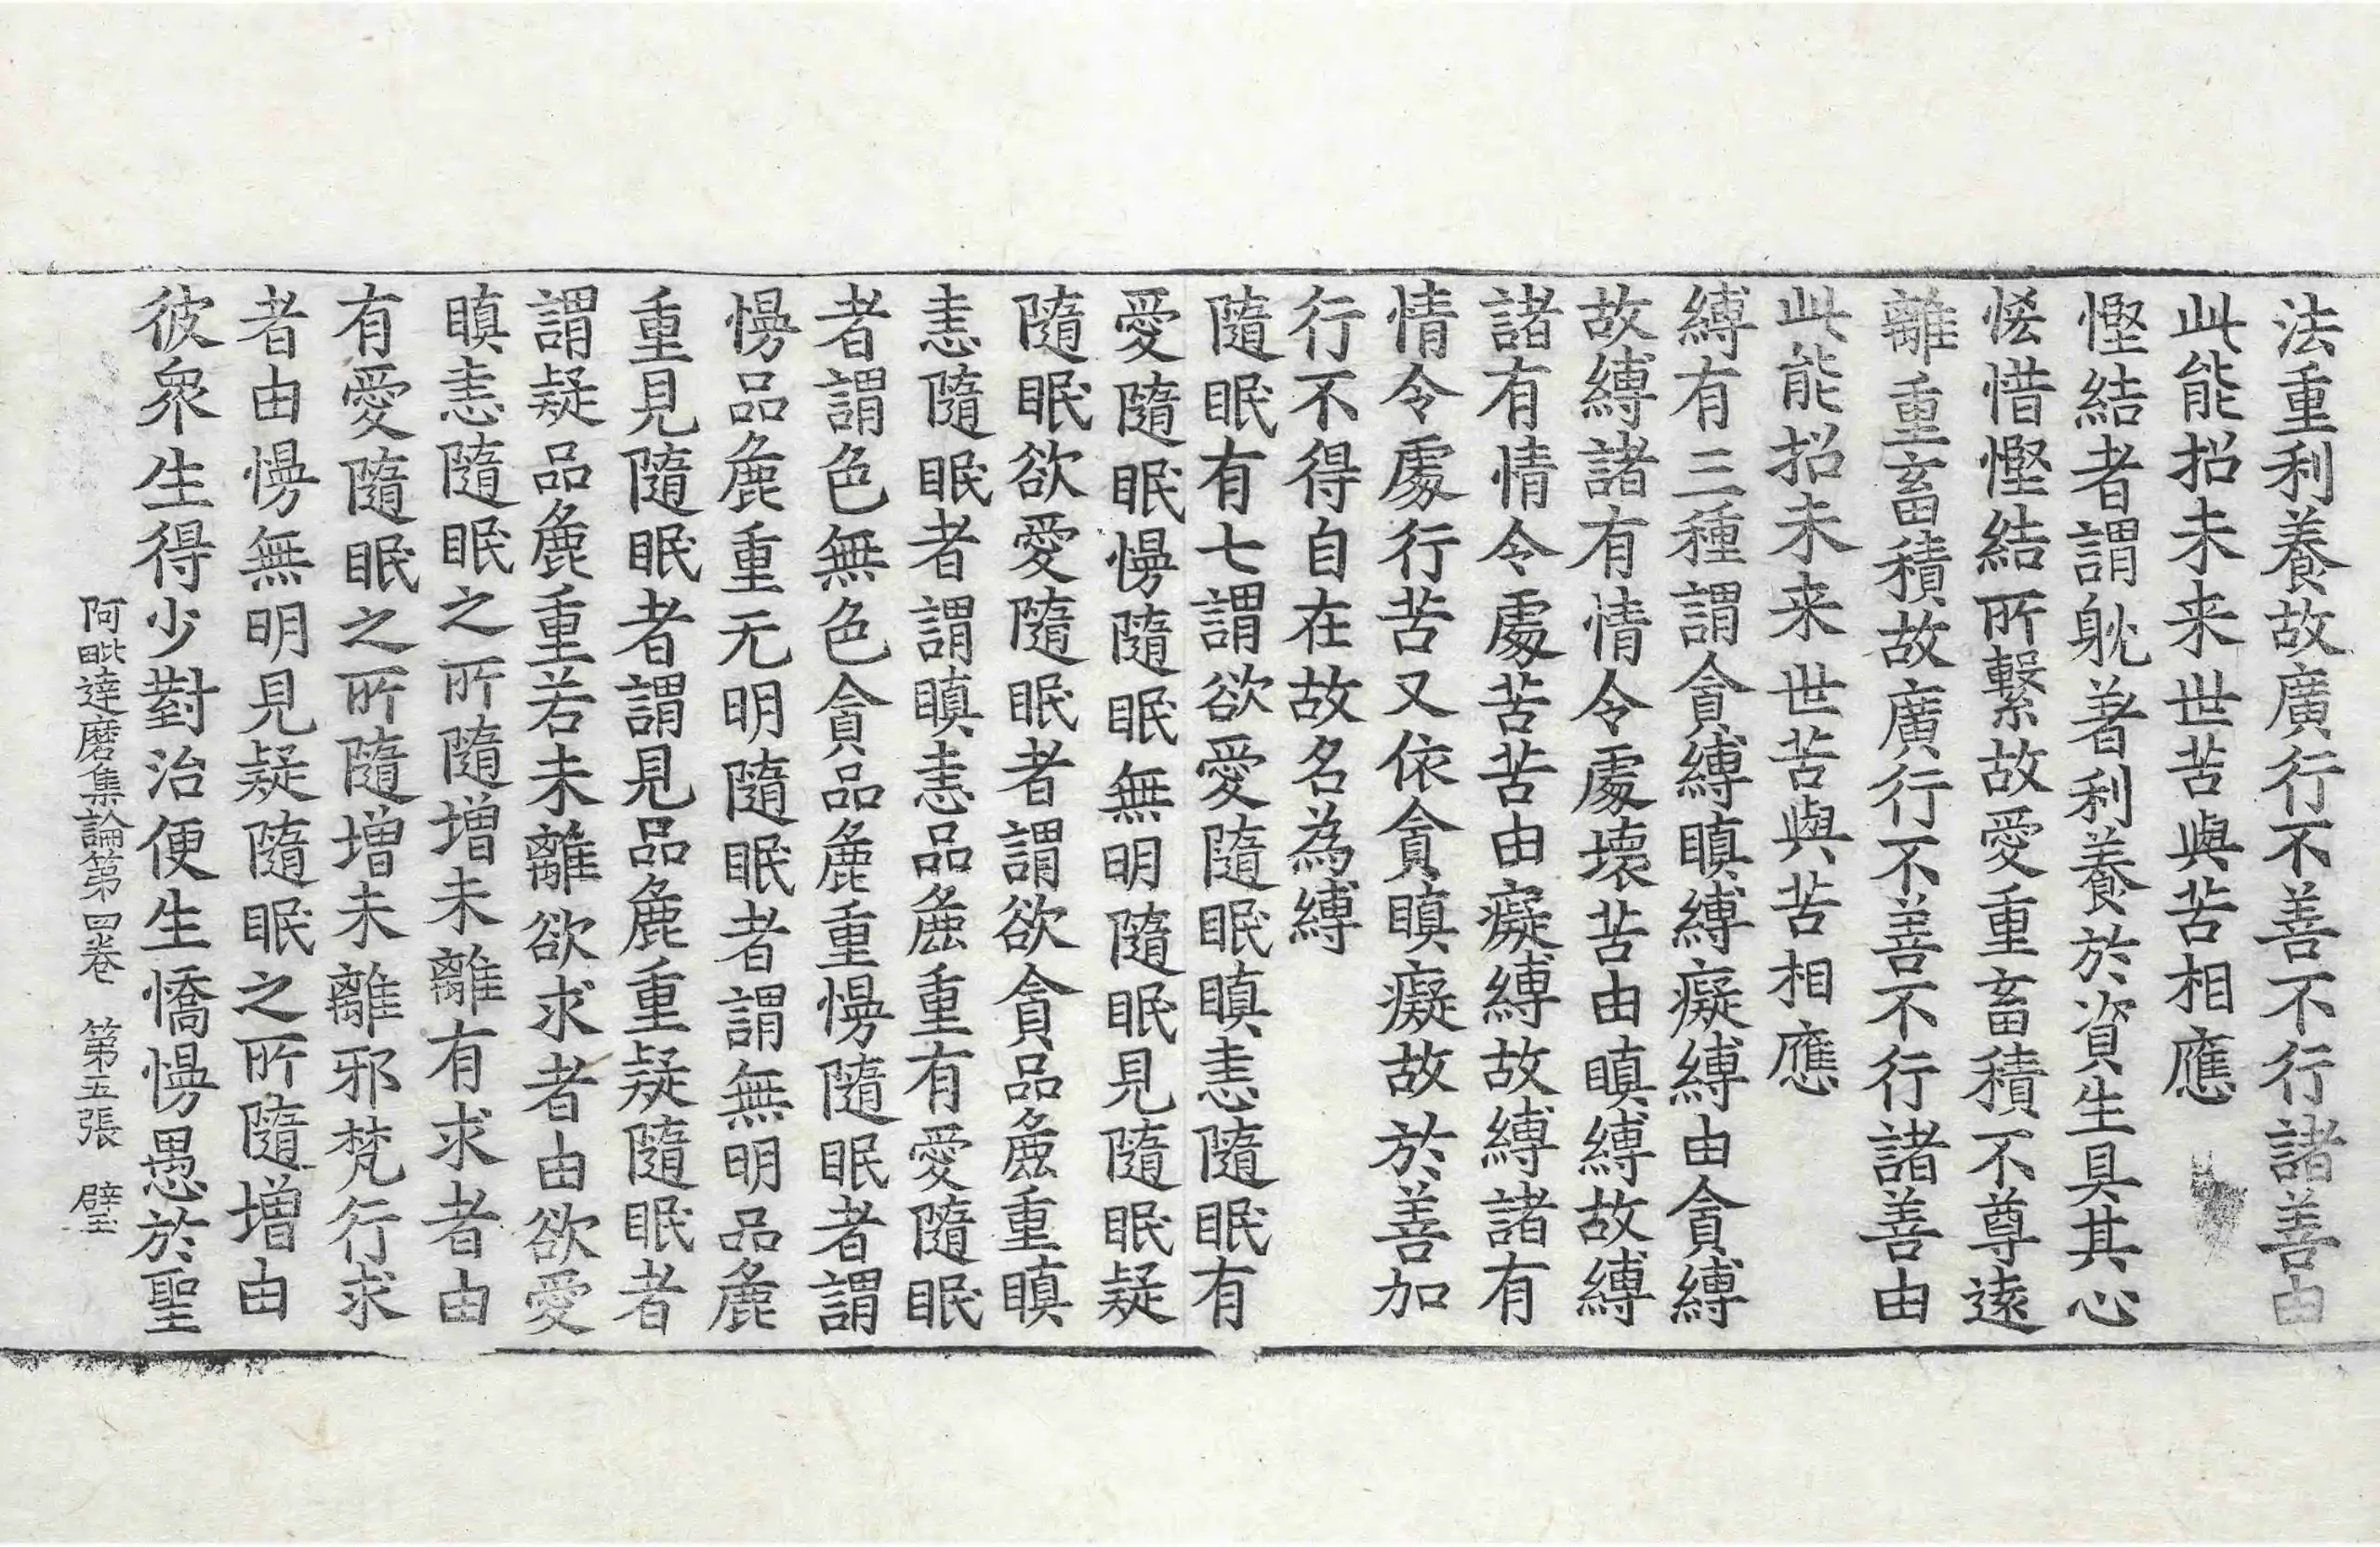 法重利養故廣行不善不行諸善由
此能招未来世苦與苦相應
慳結者謂躭著利養於資生具其心
悋惜慳結所繫故愛重畜積不尊遠
離重畜積故廣行不善不行諸善由
此能招未来世苦與苦相應
縛有三種謂貪縛瞋縛癡縛由貪縛
故縛諸有情令處壞苦由瞋縛故縛
諸有情令處苦苦由癡縛故縛諸有
情令處行苦又依貪瞋癡故於善加
行不得自在故名為縛
隨眠有七謂欲愛隨眠瞋恚隨眠有
愛隨眠慢隨眠無明隨眠見隨眠疑
隨眠欲愛隨眠者謂欲貪品麁重瞋
恚隨眠者謂瞋恚品麁重有愛隨眠
者謂色無色貪品麁重慢隨眠者謂
慢品麁重无明隨眠者謂無明品麁
重見隨眠者謂見品麁重疑隨眠者
謂疑品麁重若未離欲求者由欲愛
瞋恚隨眠之所隨增未離有求者由
有愛隨眠之所隨增未離邪梵行求
者由慢無明見疑隨眠之所隨增由
彼衆生得少對治便生憍慢愚於聖
阿毗達磨集論第四卷 第五張 璧